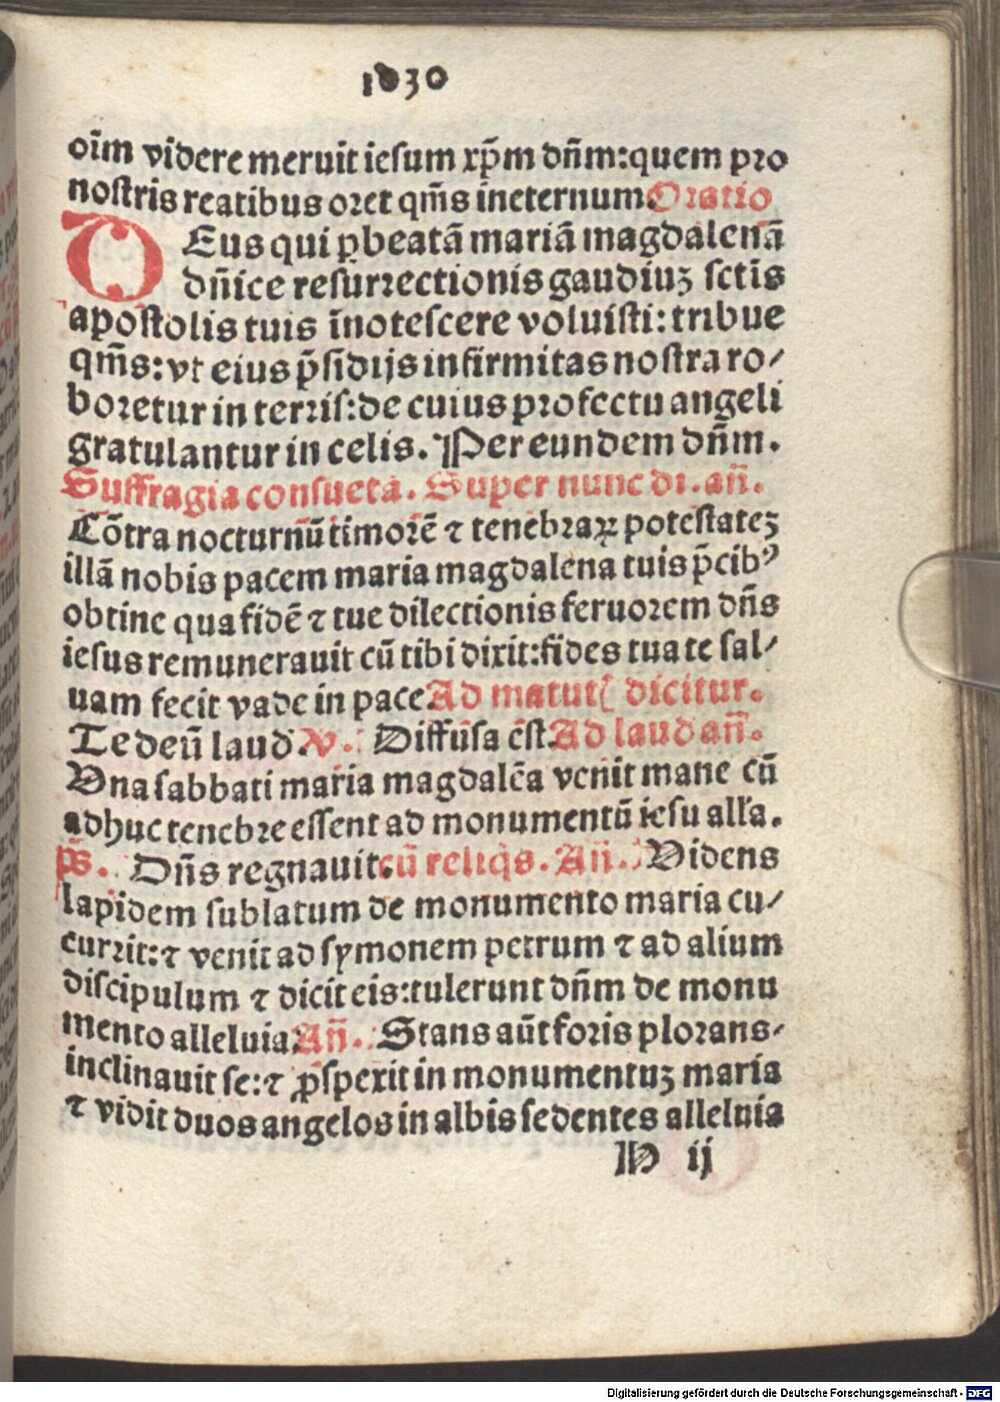 1030
oīm videre meruit iesum xp̄m dn̄m:quem pro
nostris reatibus oret qm̄s ineternum. Oratio
DEus qui ꝑ beatā mariā magdalenā
dn̄ice resurrectionis gaudiuꝫ sctīs
apostolis tuis īnotescere voluisti: tribue
qm̄s: vt eius p̄sidijs infirmitas nostra ro/
boretur in terris: de cuius profectu angeli
gratulantur in celis. Per eundem dn̄m.
Suffragia consueta. Super nunc di. an̄.
Cōtra nocturnū timorē ⁊ tenebraꝝ potestateꝫ
illā nobis pacem maria magdalena tuis p̄cibꝰ
obtine qua fidē ⁊ tue dilectionis feruorem dn̄s
iesus remunerauit cū tibi dixit: fides tua te sal/
uam fecit vade in pace. Ad matut. dicitur.
Te deū laud. V. Diffusa ēst. Ad laud an̄.
Vna sabbati maria magdalēa venit mane cū
adhuc tenebre essent ad monumentū iesu alla.
ps̄. Dn̄s regnauit. cū reliq̇s. An̄. Videns
lapidem sublatum de monumento maria cu/
currit: ⁊ venit ad symonem petrum ⁊ ad alium
discipulum ⁊ dicit eis: tulerunt dn̄m de monu
mento alleluia. An̄. Stans aūt foris plorans/
inclinauit se: ⁊ ꝓspexit in monumentuꝫ maria
⁊ vidit duos angelos in albis sedentes alleluia
H ij
Digitalisierung gefördert durch die Deutsche Forschungsgemeinschaft - DFG